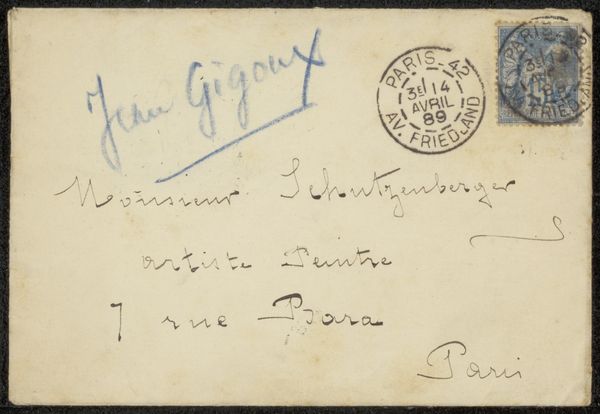 Jean Gigoux
PARIS_42
3E 14
AVRIL
89
AV. FRIEDLAND
PARIS
3E
89
FRIEDLAND
15
Monsieur Schutzenberger
artiste Peintre
7 rue Bara
Paris